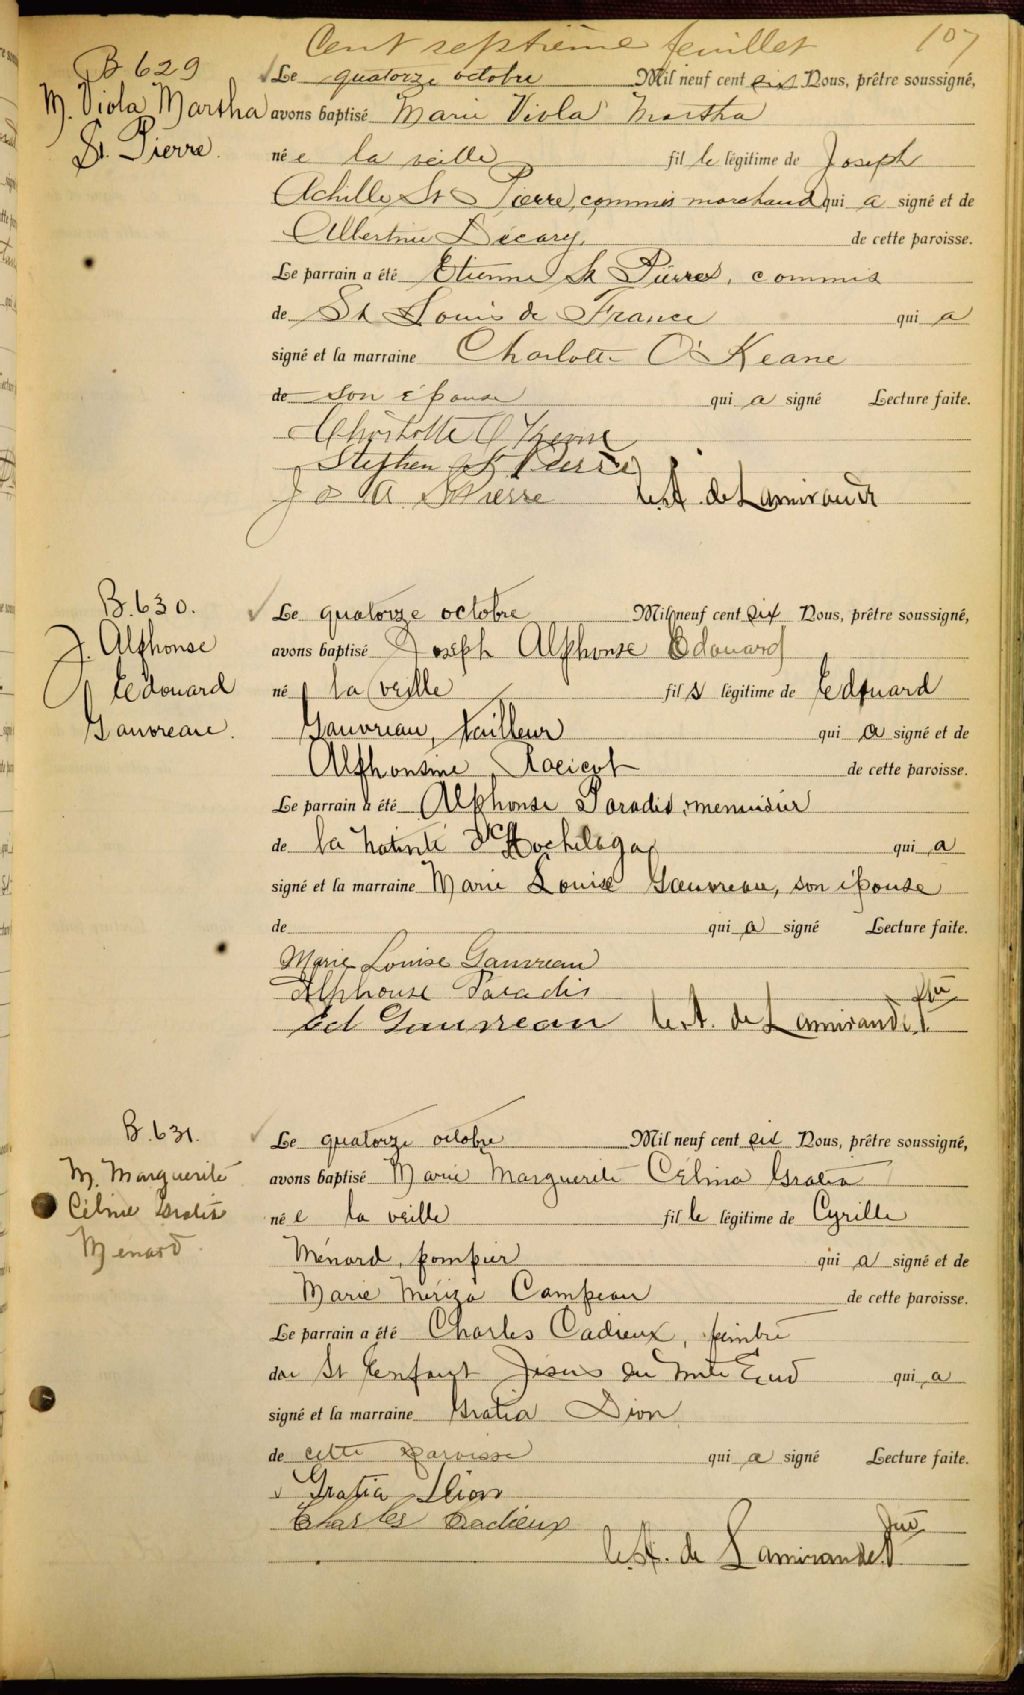 Cent septième feuillet 107
B 629
M. Viola Martha
St. Pierre.
Le quatorze octobre Mil neuf cent six Nous, prêtre soussigné,
avons baptisé Marie Viola Martha
né e la veille fil le légitime de Joseph
Achille St Pierre, commis marchand qui a signé et de
Albertine Décary, de cette paroisse.
Le parrain a été Etienne St Pierre, commis
de St Louis de France qui a
signé et la marraine Charlotte O'Keane
de son épouse qui a signé Lecture faite.
Charlotte O'Keane
Stephen St Pierre
Jos A. St Pierre A. de Lamirande
B. 630.
J. Alphonse
Edouard
Gauvreau.
Le quatorze octobre Mil neuf cent six Nous, prêtre soussigné,
avons baptisé Joseph Alphonse Edouard
né la veille fil s légitime de Edouard
Gauvreau, tailleur qui a signé et de
Alphonsine Racicot de cette paroisse.
Le parrain a été Alphonse Paradis, menuisier
de la Nativité d'Hochelaga qui a
signé et la marraine Marie Louise Gauvreau, son épouse
de qui a signé Lecture faite.
Marie Louise Gauvreau
Alphonse Paradis
Ed Gauvreau A. de Lamirande, ptre
B. 631.
M. Marguerite
Céline Gratia
Ménard.
Le quatorze octobre Mil neuf cent six Nous, prêtre soussigné,
avons baptisé Marie Marguerite Célina Gratia
né e la veille fil le légitime de Cyrille
Ménard, pompier qui a signé et de
Marie Campeau de cette paroisse.
Le parrain a été Charles Cadieux, peintre
de St Enfant Jésus du Mile End qui a
signé et la marraine Gratia Dion
de cette paroisse qui a signé Lecture faite.
Gratia Dion
Charles Cadieux
A. de Lamirande ptre